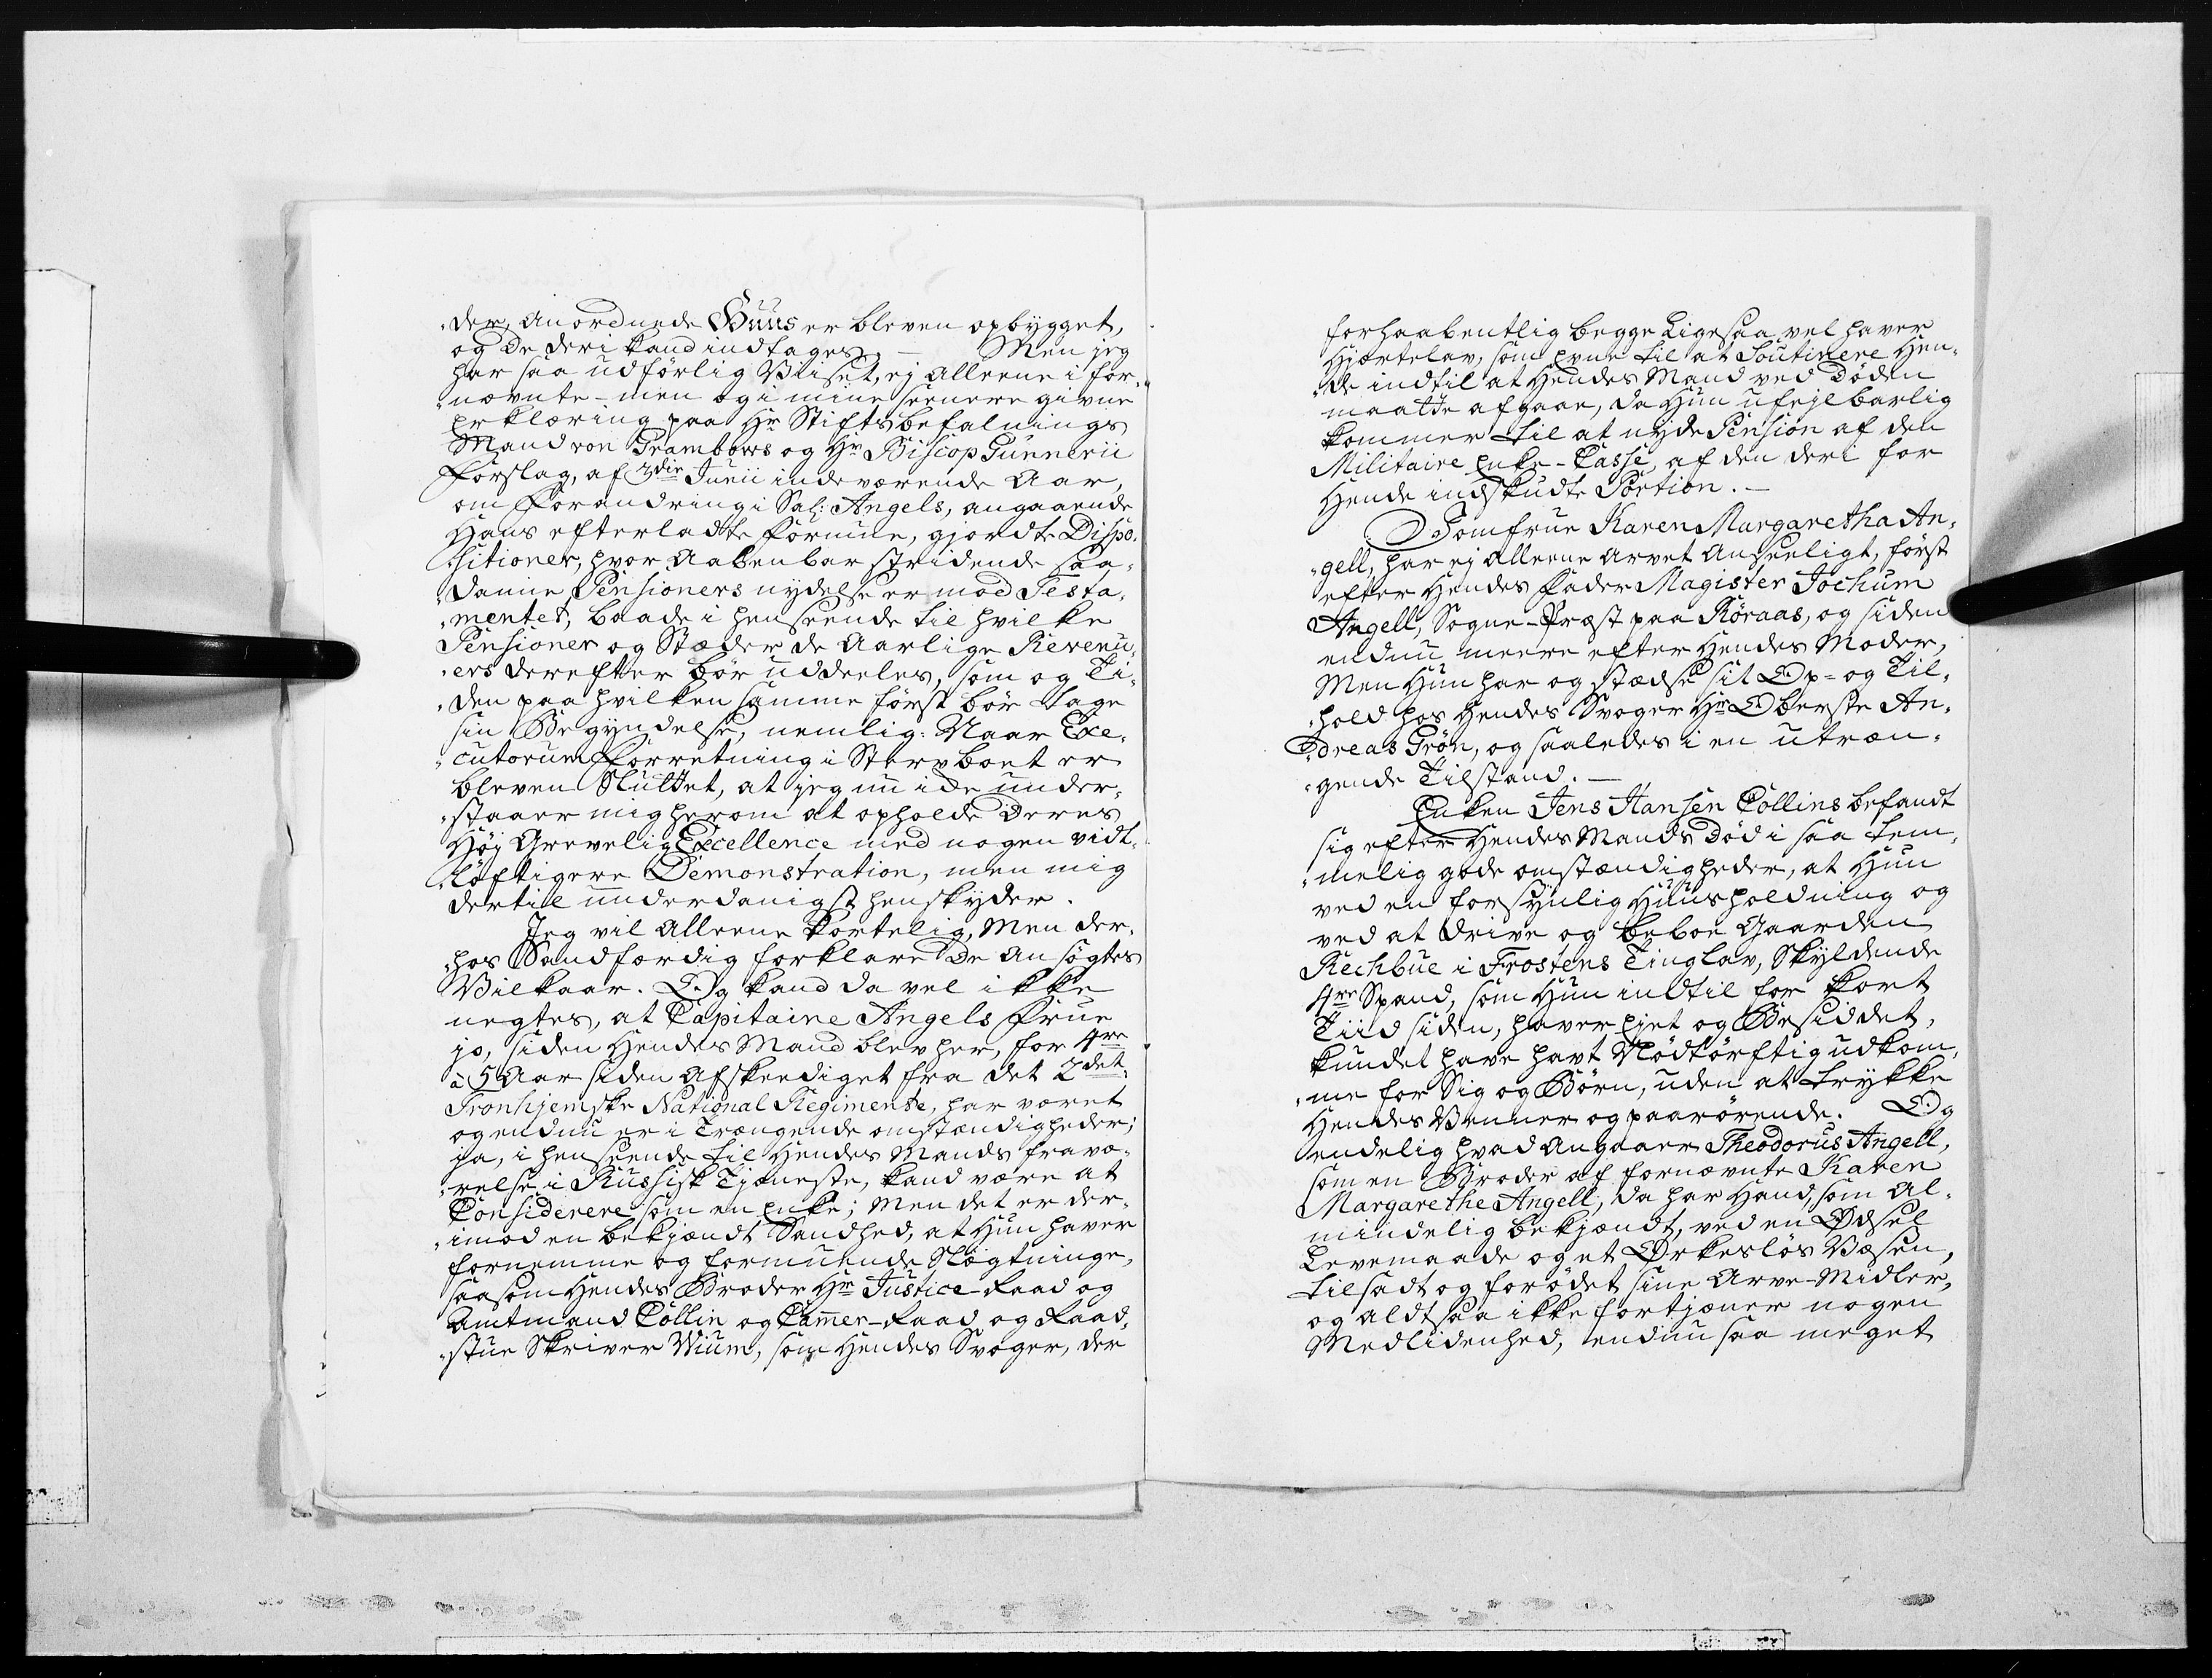 "der, anordnede Huus er bleven opbygget,
og de deri kand indtages. — Men jeg
har saa udförlig Viiset, ej alleene i for-
"nævnte - men og i mine seenere givne
Erklæring paa Hr Stiftsbefalnings
Mand von Grambows og Hr Biscop Gunnerii
Forslag, af 3die Junii indeværende Aar,
om Forandring i Sal: Angels, angaaende
Hans efterladte Formue, gjordte Dispo-
"sitioner, hvor Aabenbar stridende saa-
"danne Pensioners nydelse er mod Testa-
"mentet, baade i henseende til hvilke
Pensioner og Stæder de Aarlige Revenu-
"ers derefter bör uddeeles, som og Ti-
"den paa hvilken samme först bör tage
sin Begyndelse, nemlig: Naar Exe-
"cutorum Forretning i Stervboet er
bleven Sluttet, at jeg nu ide under-
"staaer mig herom at opholde Deres
Höj Grevelig Excellence med nogen vidt-
"löftigere Demonstration, men mig
dertil underdanigst henskyder.
Jeg vil alleene kortelig, Men der-
"hos Sandfærdig forklare de ansögtes
Vilkaar. Og kand da vel ikke
negtes, at Capitaine Angels Frue
jo, siden Hendes Mand blev her, for 4re
à 5 Aar siden Afskeediget fra det 2det
Tronhjemske National Regimente, har været
og endnu er i Trængende omstændigheder;
ja, i henseende til Hendes Mands fravæ-
"relse i Russisk Tjeneste, kand være at
Considerere som en Enke; Men det er der-
"imod en bekjændt Sandhed, at Hun haver
fornemme og formuende Slægtninge,
saasom Hendes Broder Hr Justice-Raad og
Amtmand Collin og Cammer-Raad og Raad-
"stue Skriver Wium, som Hendes Svoger, der
forhaabentlig begge Ligesaa vel haver
Hjertelav, som Evne til at Soutinere Hen-
"de indtil at Hendes Mand ved Döden
maatte afgaae, da Hun ufejlbarlig
kommer til at nyde Pension af den
Militaire Enke-Casse, af den deri for
Hende indskudte Portion. —
Jomfrue Karen Margaretha An-
"gell, har ej alleene arvet Anseeligt, först
efter Hendes Fader Magister Jochum
Angell, Sogne-Præst paa Röraas, og siden
endnu meere efter Hendes Moder,
Men Hun har og stædse sit Op- og Til-
"hold hos Hendes Svoger Hr Oberste An-
"dreas Grön, og saaledes i en utræn-
"gende Tilstand. —
Enken Jens Hansen Collins befandt
sig efter Hendes Mands Död i saa tem-
"melig gode omstændigheder, at Hun
ved en forsynlig Huusholdning og
ved at drive og beboe Gaarden
Rechbue i Frostens Tinglav, Skyldende
4re Spand, som Hun indtil for kort
Tiid siden, haver Ejet og Besiddet,
kundet have havt Nödtörftig udkom-
"me for Sig og Börn, uden at trykke
Hendes Venner og paarörende. Og
endelig hvad Angaaer Theodorus Angell,
som en Broder af fornævnte Karen
Margarethe Angell, da har Hand, som al-
mindelig bekjændt, ved en Ödsel
Levemaade og et Örkeslös Væsen,
tilsadt og forödet sine Arve-Midler,
og altsaa ikke fortjæner nogen
Medlidenhed, endnu saa meget